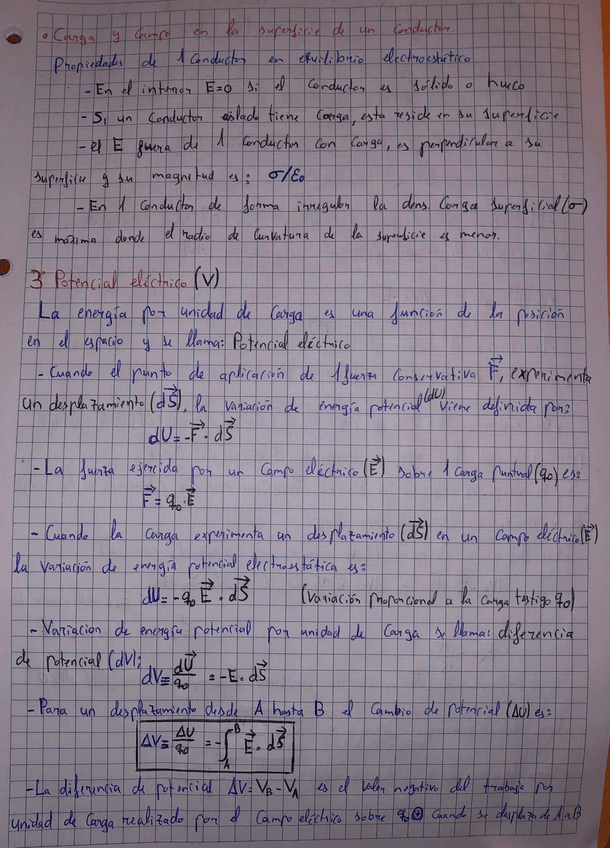 • Carga y Campo en la superficie de un conductor.
Propiedades de 1 Conductor en equilibrio electroestático
- En el interior E=0 si el conductor es sólido o hueco
- Si un Conductor aislado tiene Carga, esta reside en su superficie
- el E fuera de 1 conductor con Carga, es perpendicular a su
superficie y su magnitud es: σ/ε₀
- En 1 Conductor de forma irregular la dens. Carga superficial (σ)
es máxima donde el radio de Curvatura de la superficie es menor.
3 Potencial eléctrico (V)
La energía por unidad de Carga es una función de la posición
en el espacio y se llama: Potencial eléctrico
- Cuando el punto de aplicación de 1 fuerza Conservativa F⃗, experimenta
un desplazamiento (dS⃗), la variación de energía potencial (dU) viene definida por:
dU = -F⃗ · dS⃗
- La fuerza ejercida por un Campo eléctrico (E⃗) sobre 1 Carga puntual (q₀) es:
F⃗ = q₀ · E⃗
- Cuando la Carga experimenta un desplazamiento (dS⃗) en un campo eléctrico (E⃗)
la variación de energía potencial electroestática es:
dU = -q₀ E⃗ · dS⃗ (Variación proporcional a la carga testigo q₀)
- Variacion de energía potencial por unidad de Carga se llama: diferencia
de potencial (dV):
dV ≡ dU⃗/q₀ = -E · dS⃗
- Para un desplazamiento desde A hasta B el Cambio de potencial (ΔU) es:
ΔV ≡ ΔU/q₀ = -∫_A^B E⃗ · dS⃗
- La diferencia de potencial ΔV = V_B - V_A es el valor negativo del trabajo por
unidad de Carga realizado por el Campo eléctrico sobre q₀⊕ cuando se desplaza de A a B